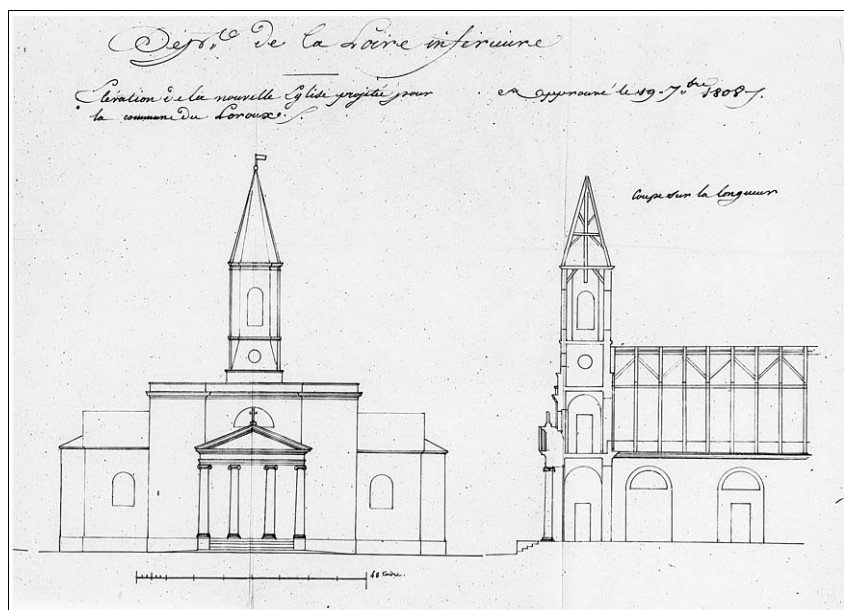 Dép.t de la Loire inferieure
Elévation de la nouvelle Eglise projetée pour
la commune du Loroux.
approuvé le 19 - 7.bre 1808
Coupe sur la longueur